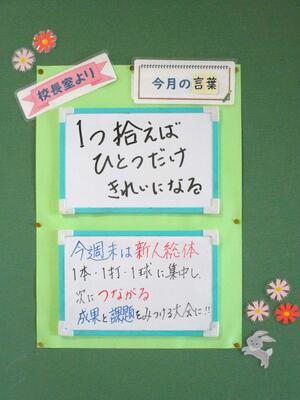 校長室より
今月の言葉
1つ拾えば
ひとつだけ
きれいになる
今週末は新人総体
1本・1打・1球に集中し、
次につながる
成果と課題をみつける大会に!!